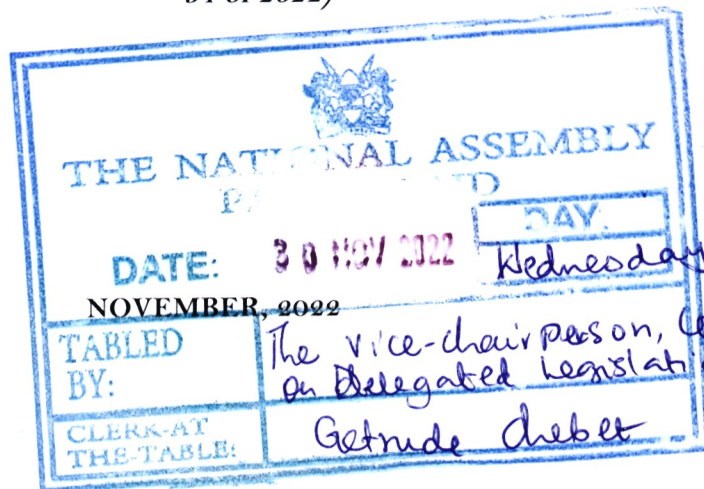 of 2022)
THE NATIONAL ASSEMBLY
DATE: 30 NOV 2022
DAY.
Wednesday
NOVEMBER, 2022
TABLED BY:
The vice-chairperson,
on Delegated Legislati
CLERK-AT THE-TABLE:
Getrude Chebet